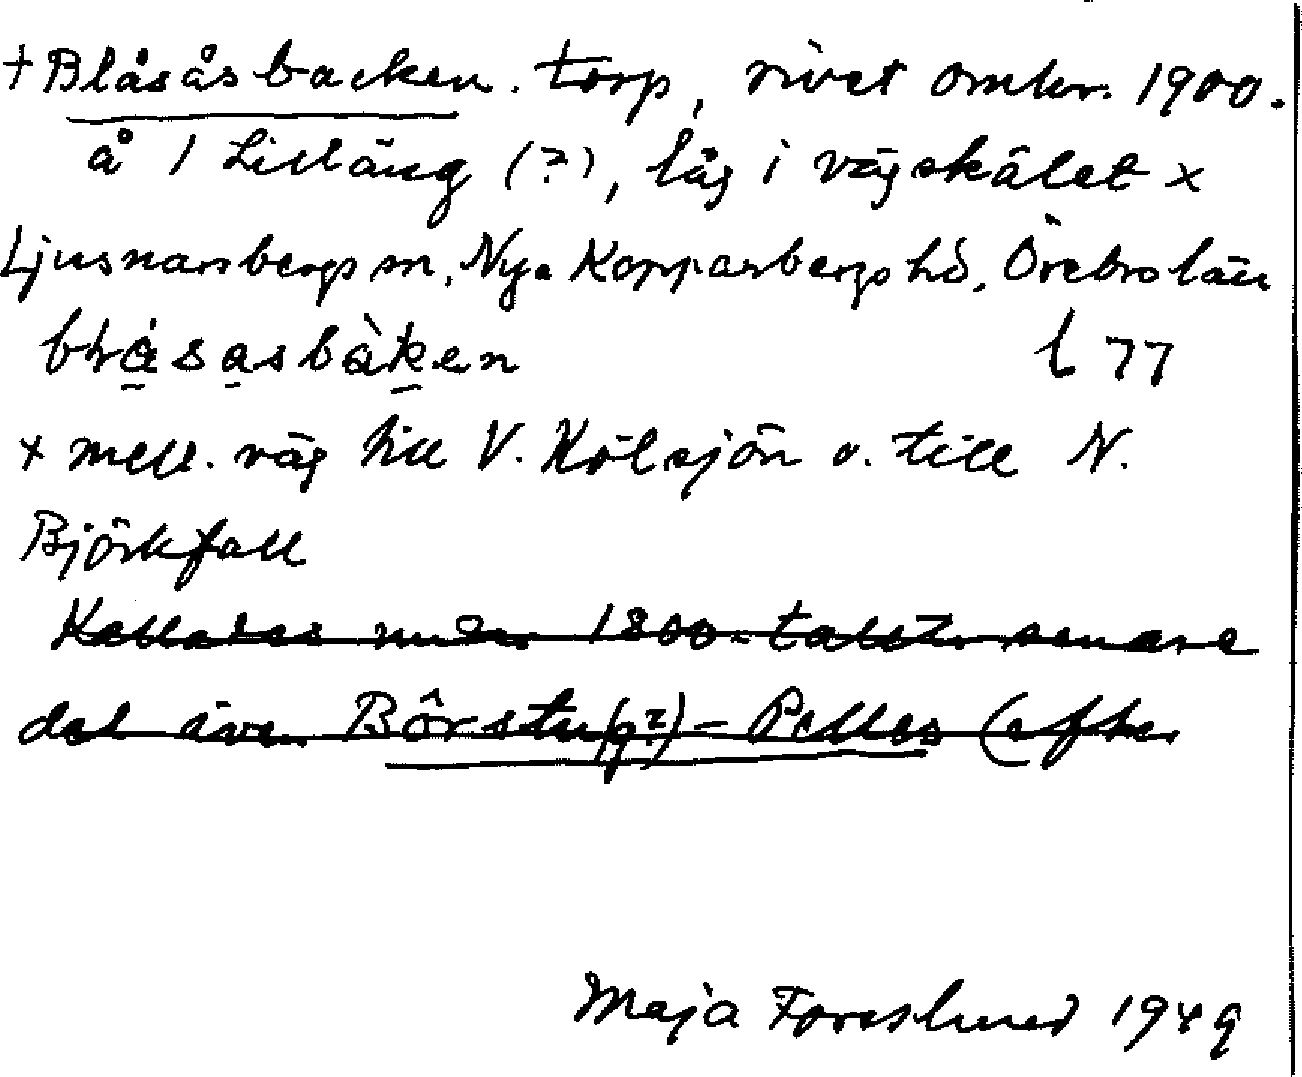 + Blåsåsbacken. torp, rivet omkr. 1900.
å 1 Lilläng (?), låg i vägskälet x
Ljusnarsbergs sn, Nya Kopparbergs hd, Örebro län
l 77
x mell. väg till V. Kölsjön o. till N.
Björkfall
Kallades under 1800-talets senare
del även Börstu(g?)-Pelles (efter
Maja Forsslund 1949